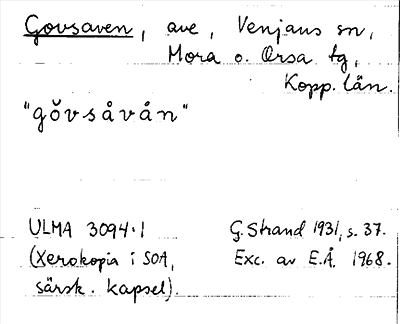 Govsaven, ave, Venjans sn,
Mora o. Orsa tg,
Kopp. län.
"gǒvsåvån"
ULMA 3094:1 G. Strand 1931, s. 37.
(Xerokopia i SOA, Exc. av E.Å. 1968.
särsk. kapsel).